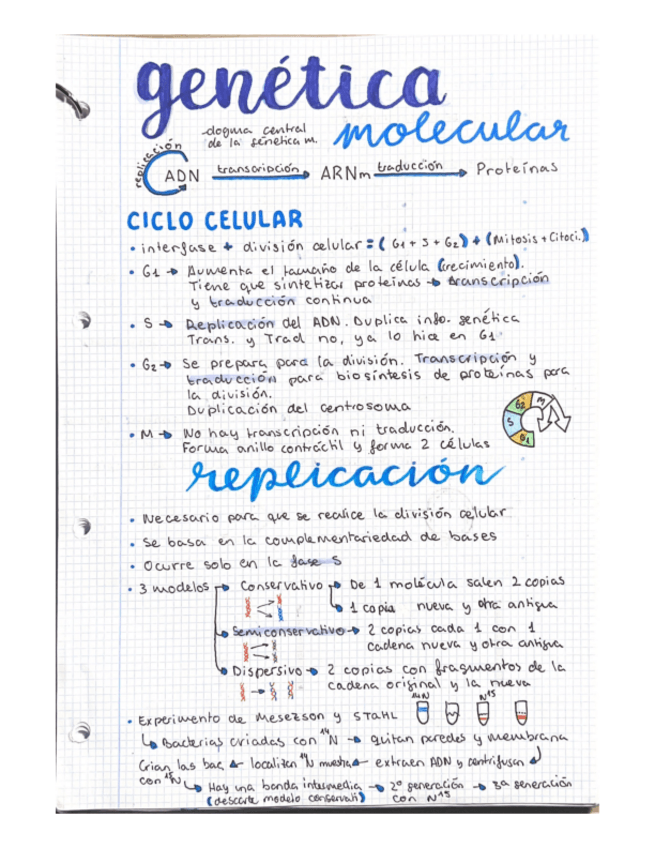 genética
dogma central
de la genética m. molecular
replicación
ADN transcripción ARNm traducción Proteínas
CICLO CELULAR
• interfase + división celular = (G1 + S + G2) + (Mitosis + Citoci.)
• G1 → Aumenta el tamaño de la célula (crecimiento).
Tiene que sintetizar proteínas → transcripción
y traducción continua
• S → Replicación del ADN. Duplica info. genética
Trans. y Trad no, ya lo hice en G1
• G2 → Se prepara para la división. Transcripción y
traducción para biosíntesis de proteínas para
la división.
Duplicación del centrosoma
G2 M
S
G1
• M → No hay transcripción ni traducción.
Forma anillo contráctil y forma 2 células
replicación
• Necesario para que se realice la división celular
• Se basa en la complementariedad de bases
• Ocurre solo en la fase S
• 3 modelos → Conservativo → De 1 molécula salen 2 copias
→ 1 copia nueva y otra antigua
→ Semiconservativo → 2 copias cada 1 con 1
cadena nueva y otra antigua
→ Dispersivo → 2 copias con fragmentos de la
cadena original y la nueva
14N N15
• Experimento de Mesezson y STAHL
→ Bacterias criadas con 14N → quitan paredes y membrana
Crian las bac → localizan 14N muestra → extraen ADN y centrifugan
con 15N → Hay una banda intermedia → 2º generación → 3ª generación
(descarte modelo conservati) con N15